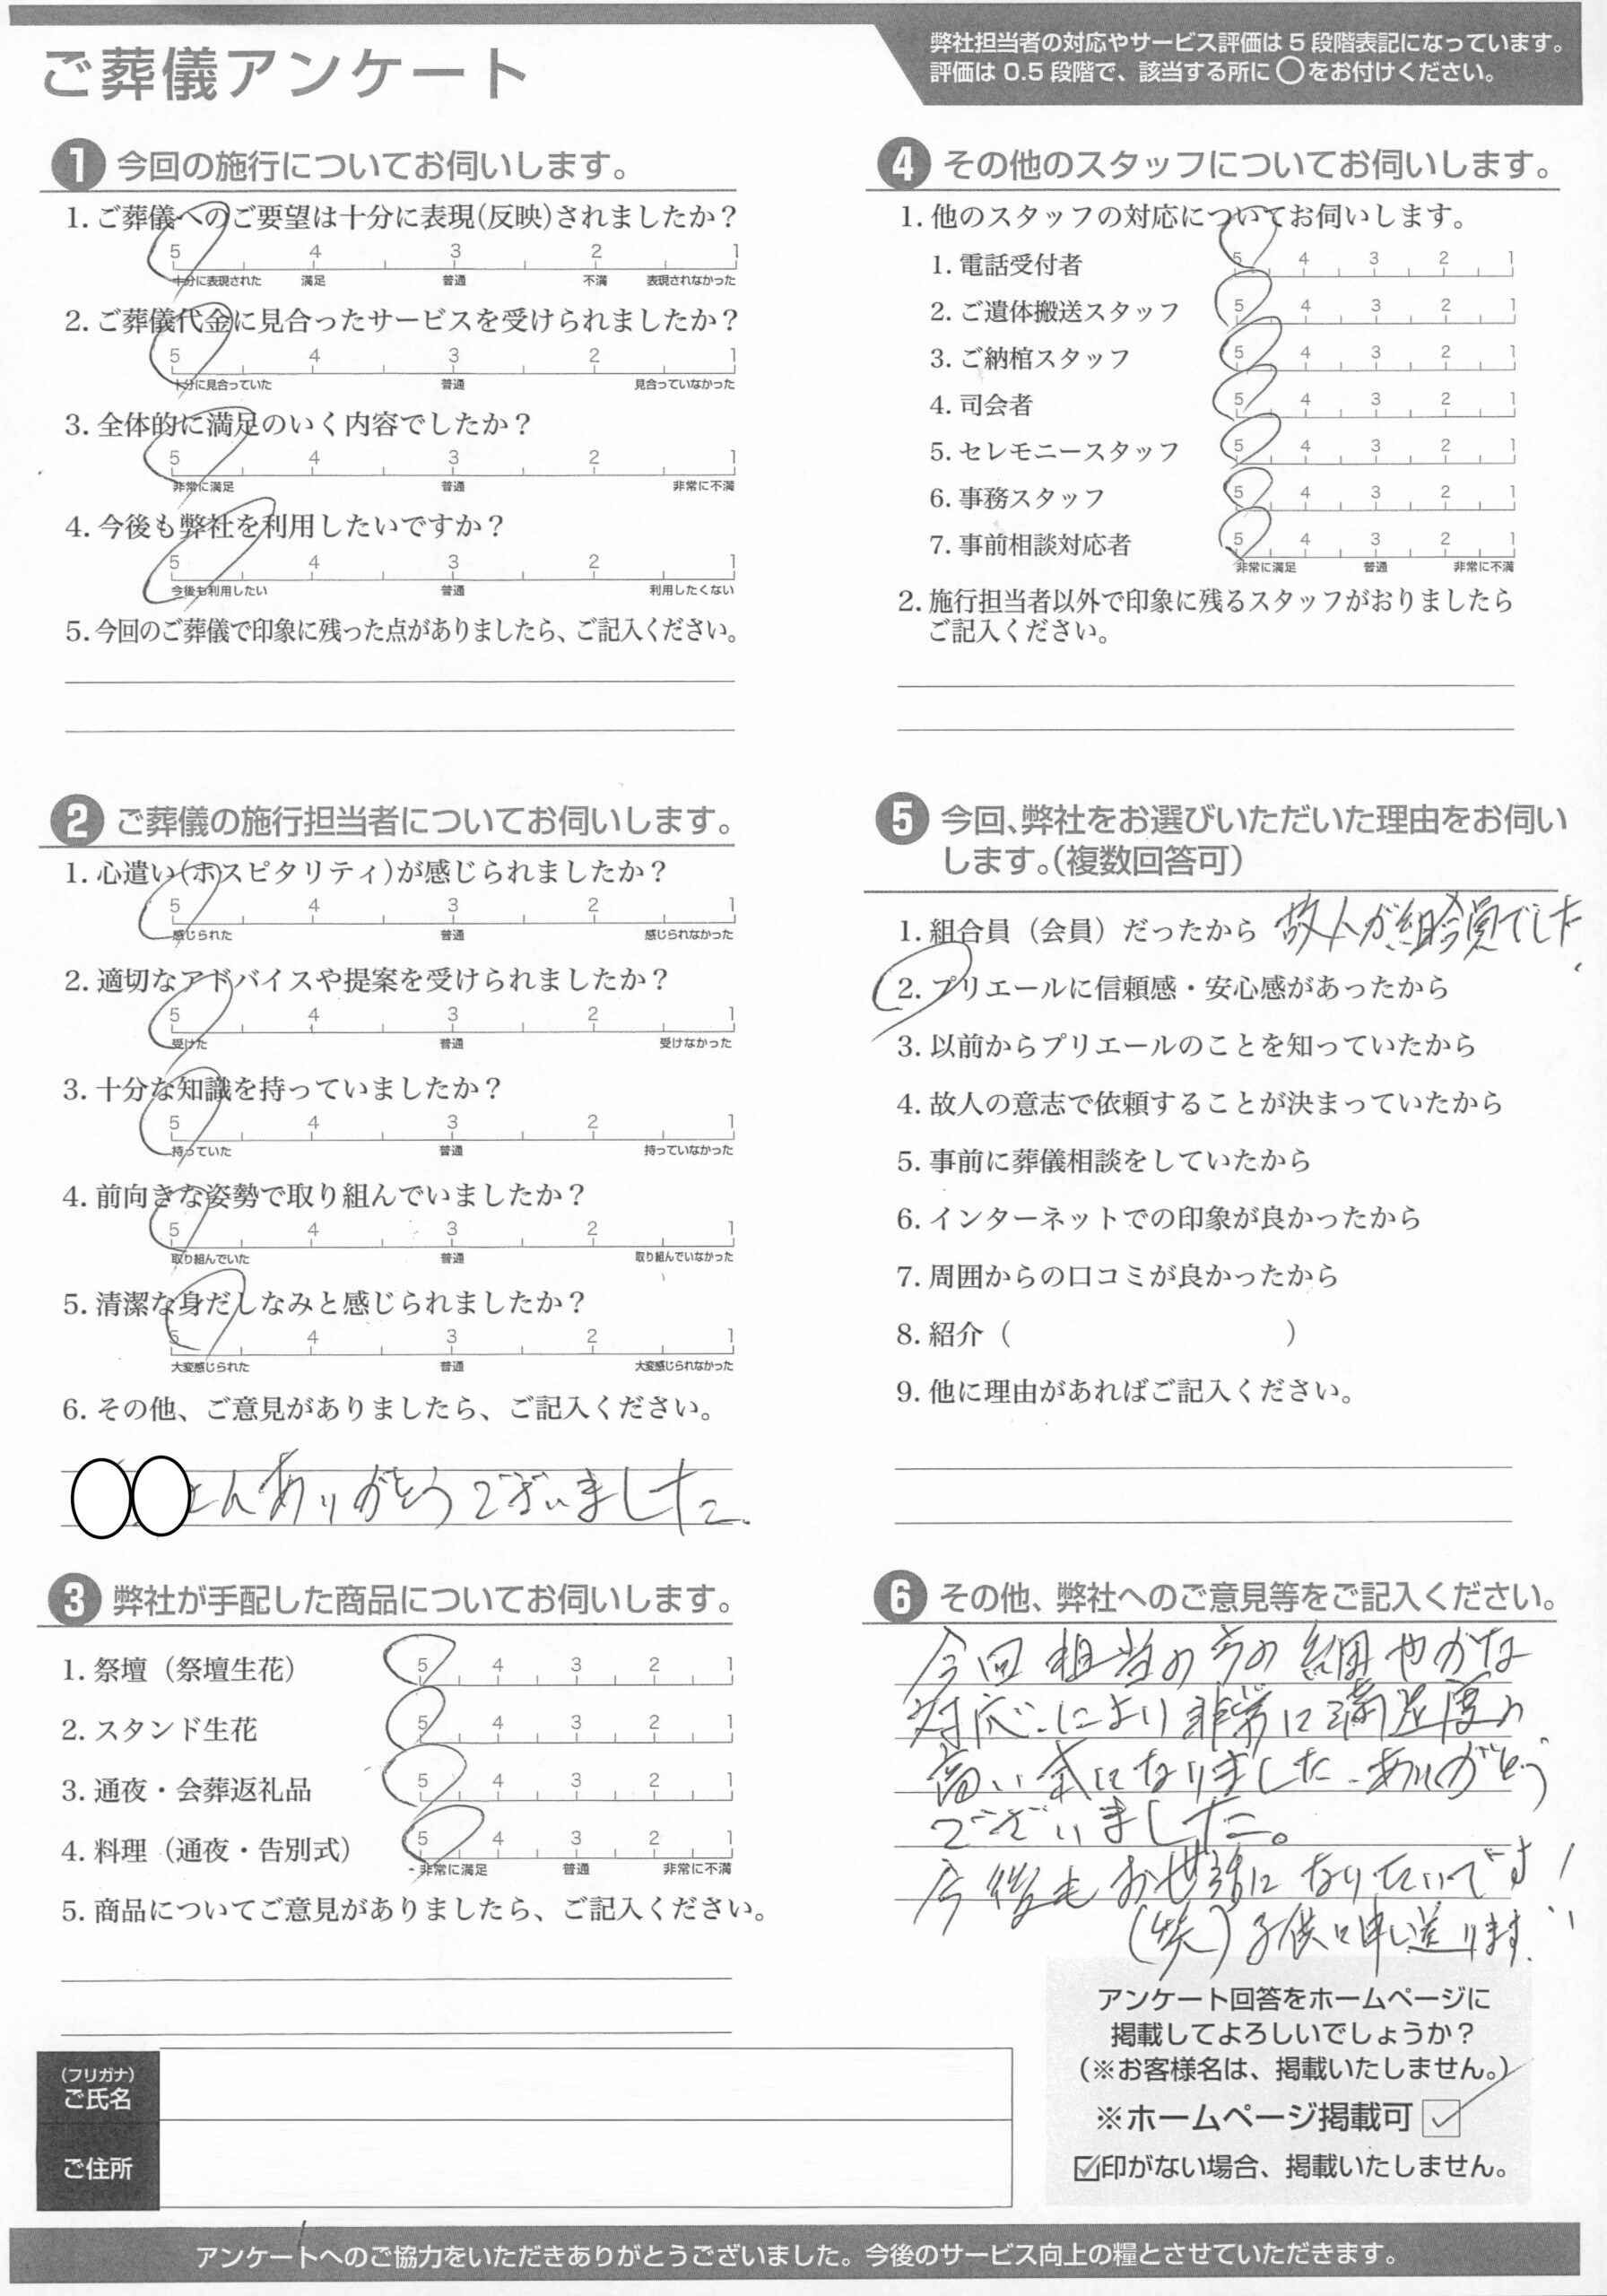 ご葬儀アンケート
弊社担当者の対応やサービス評価は5段階表記になっています。
評価は0.5段階で、該当する所に○をお付けください。
1 今回の施行についてお伺いします。
1. ご葬儀へのご要望は十分に表現(反映)されましたか？
5 4 3 2 1
十分に表現された 満足 普通 不満 表現されなかった
2. ご葬儀代金に見合ったサービスを受けられましたか？
5 4 3 2 1
十分に見合っていた 普通 見合っていなかった
3. 全体的に満足のいく内容でしたか？
5 4 3 2 1
非常に満足 普通 非常に不満
4. 今後も弊社を利用したいですか？
5 4 3 2 1
今後も利用したい 普通 利用したくない
5. 今回のご葬儀で印象に残った点がありましたら、ご記入ください。
2 ご葬儀の施行担当者についてお伺いします。
1. 心遣い(ホスピタリティ)が感じられましたか？
5 4 3 2 1
感じられた 普通 感じられなかった
2. 適切なアドバイスや提案を受けられましたか？
5 4 3 2 1
受けた 普通 受けなかった
3. 十分な知識を持っていましたか？
5 4 3 2 1
持っていた 普通 持っていなかった
4. 前向きな姿勢で取り組んでいましたか？
5 4 3 2 1
取り組んでいた 普通 取り組んでいなかった
5. 清潔な身だしなみと感じられましたか？
5 4 3 2 1
大変感じられた 普通 大変感じられなかった
6. その他、ご意見がありましたら、ご記入ください。
さんありがとうございました。
3 弊社が手配した商品についてお伺いします。
1. 祭壇（祭壇生花） 5 4 3 2 1
2. スタンド生花 5 4 3 2 1
3. 通夜・会葬返礼品 5 4 3 2 1
4. 料理（通夜・告別式） 5 4 3 2 1
非常に満足 普通 非常に不満
5. 商品についてご意見がありましたら、ご記入ください。
4 その他のスタッフについてお伺いします。
1. 他のスタッフの対応についてお伺いします。
1. 電話受付者 5 4 3 2 1
2. ご遺体搬送スタッフ 5 4 3 2 1
3. ご納棺スタッフ 5 4 3 2 1
4. 司会者 5 4 3 2 1
5. セレモニースタッフ 5 4 3 2 1
6. 事務スタッフ 5 4 3 2 1
7. 事前相談対応者 5 4 3 2 1
非常に満足 普通 非常に不満
2. 施行担当者以外で印象に残るスタッフがおりましたら
ご記入ください。
5 今回、弊社をお選びいただいた理由をお伺い
します。(複数回答可)
1. 組合員（会員）だったから 故人が組合員でした。
2. プリエールに信頼感・安心感があったから
3. 以前からプリエールのことを知っていたから
4. 故人の意志で依頼することが決まっていたから
5. 事前に葬儀相談をしていたから
6. インターネットでの印象が良かったから
7. 周囲からの口コミが良かったから
8. 紹介（ ）
9. 他に理由があればご記入ください。
6 その他、弊社へのご意見等をご記入ください。
今回担当の方の細やかな
対応により非常に満足度の
高い式になりました。ありがとう
ございました。
今後もお世話になりたいです！
(笑)子供に申し送ります。
アンケート回答をホームページに
掲載してよろしいでしょうか？
(※お客様名は、掲載いたしません。)
※ホームページ掲載可 ☑
☑印がない場合、掲載いたしません。
(フリガナ)
ご氏名
ご住所
アンケートへのご協力をいただきありがとうございました。今後のサービス向上の糧とさせていただきます。